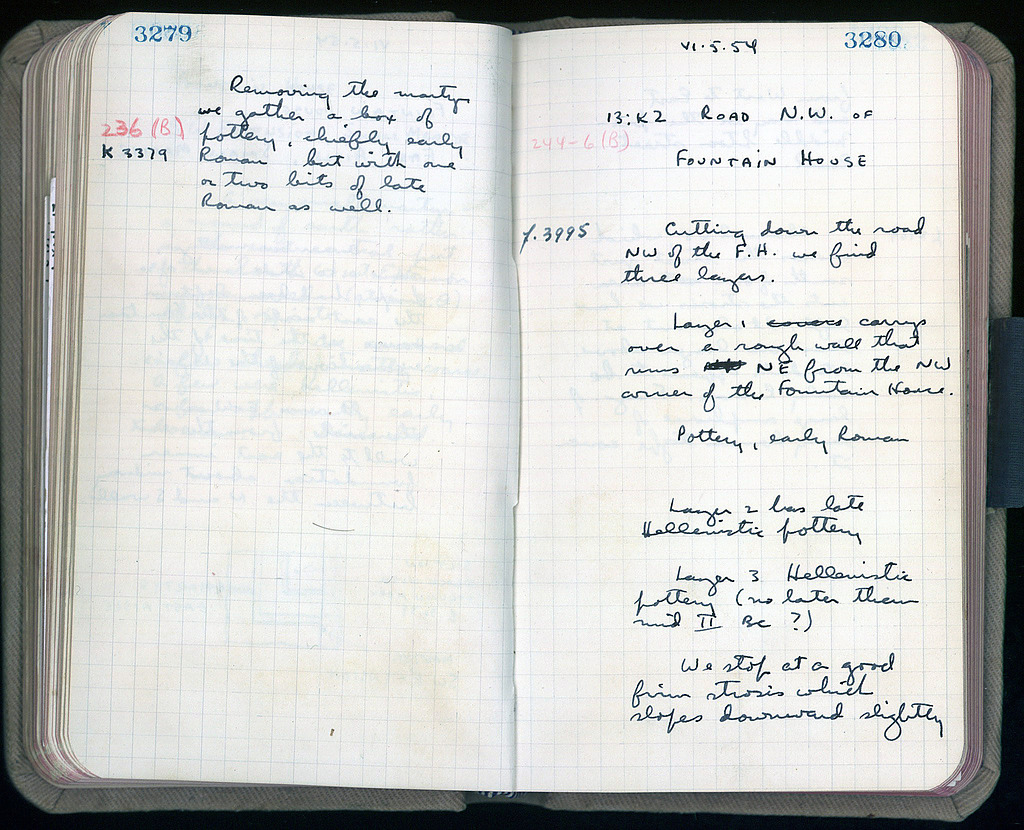 3279
Removing the martyr
we gather a box of
236 (B) pottery, chiefly early
K 3379 Roman but with one
or two bits of late
Roman as well.
3280
VI.5.54
13:K2 ROAD N.W. OF
244-6 (B)
FOUNTAIN HOUSE
f.3995 Cutting down the road
NW of the F.H. we find
three layers.
Layer 1 covers carrys
over a rough wall that
runs NE from the NW
corner of the Fountain House.
Pottery, early Roman
Layer 2 has late
Hellenistic pottery
Layer 3 Hellenistic
pottery (no later than
mid II BC ?)
We stop at a good
firm strosis which
slopes downward slightly